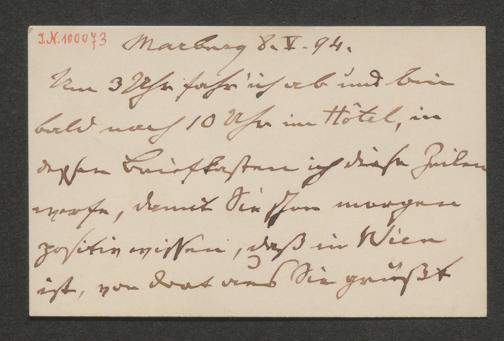 I.N. 100073
Marburg 8.V.94.
Um 3 Uhr fahr' ich ab und bin
bald nach 10 Uhr im Hôtel, in
dessen Briefkasten ich diese Zeilen
werfe, damit Sie schon morgen
positiv wissen, daß in Wien
ist, von dort aus Sie grüßt